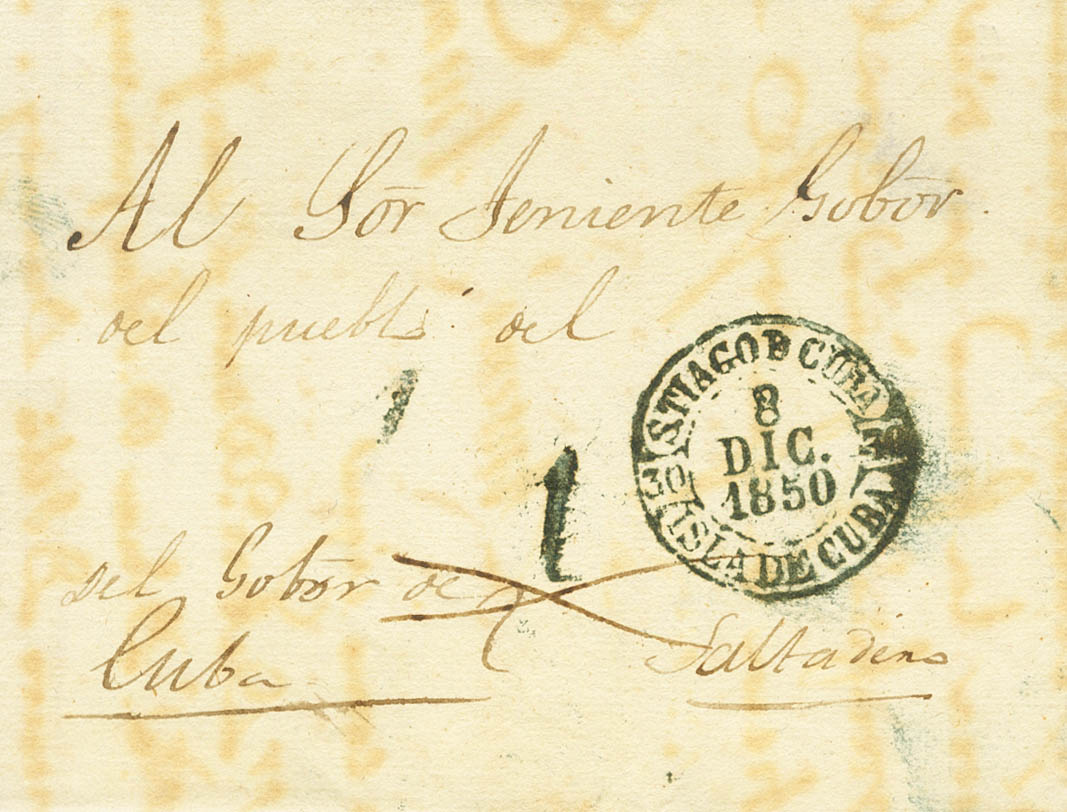 Al Sōr Teniente Gobōr
del pueblo del
STIAGO D CUBA
8
DIC.
1850
ISLA DE CUBA
1
del Gobōr de
Cuba